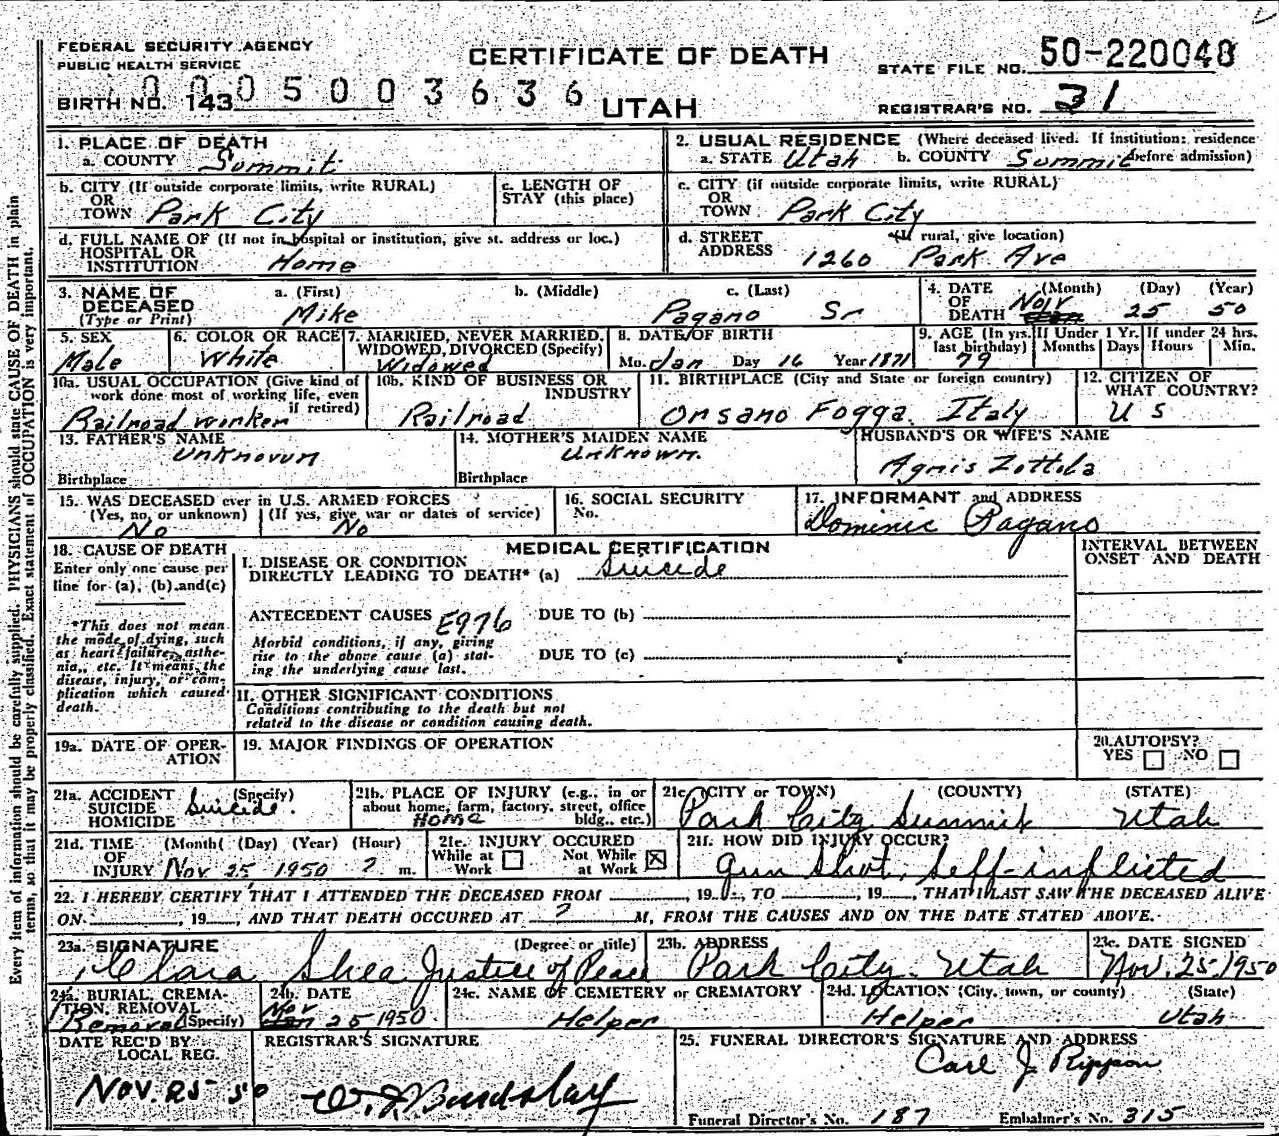 FEDERAL SECURITY AGENCY
PUBLIC HEALTH SERVICE
CERTIFICATE OF DEATH
STATE FILE NO. 50-220048
0005003636
BIRTH NO. 143
UTAH
REGISTRAR'S NO. 31
1. PLACE OF DEATH
a. COUNTY Summit
2. USUAL RESIDENCE (Where deceased lived. If institution: residence before admission)
a. STATE Utah b. COUNTY Summit
b. CITY (If outside corporate limits, write RURAL)
OR
TOWN Park City
c. LENGTH OF
STAY (this place)
c. CITY (if outside corporate limits, write RURAL)
OR
TOWN Park City
d. FULL NAME OF (If not in hospital or institution, give st. address or loc.)
HOSPITAL OR
INSTITUTION Home
d. STREET (If rural, give location)
ADDRESS 1260 Park Ave
3. NAME OF
DECEASED
(Type or Print)
a. (First) b. (Middle) c. (Last)
Mike Pagano Sr
4. DATE (Month) (Day) (Year)
OF
DEATH Nov 25 50
5. SEX
Male
6. COLOR OR RACE
White
7. MARRIED, NEVER MARRIED,
WIDOWED, DIVORCED (Specify)
Widowed
8. DATE OF BIRTH
Mo. Jan Day 16 Year 1871
9. AGE (In yrs. last birthday)
79
If Under 1 Yr.
Months Days
If under 24 hrs.
Hours Min.
10a. USUAL OCCUPATION (Give kind of
work done most of working life, even
if retired)
Railroad worker
10b. KIND OF BUSINESS OR
INDUSTRY
Railroad
11. BIRTHPLACE (City and State or foreign country)
Orsano Fogga. Italy
12. CITIZEN OF
WHAT COUNTRY?
U S
13. FATHER'S NAME
Unknown
Birthplace
14. MOTHER'S MAIDEN NAME
Unknown.
Birthplace
HUSBAND'S OR WIFE'S NAME
Agnis Zottola
15. WAS DECEASED ever in U.S. ARMED FORCES ?
(Yes, no, or unknown) (If yes, give war or dates of service)
No No
16. SOCIAL SECURITY
No.
17. INFORMANT and ADDRESS
Dominic Pagano
18. CAUSE OF DEATH
Enter only one cause per
line for (a), (b) and (c)
*This does not mean
the mode of dying, such
as heart failure, asthe-
nia, etc. It means the
disease, injury, or com-
plication which caused
death.
MEDICAL CERTIFICATION
I. DISEASE OR CONDITION
DIRECTLY LEADING TO DEATH* (a) Suicide
ANTECEDENT CAUSES E976 DUE TO (b)
Morbid conditions, if any, giving
rise to the above cause (a) stat-
ing the underlying cause last.
DUE TO (c)
II. OTHER SIGNIFICANT CONDITIONS
Conditions contributing to the death but not
related to the disease or condition causing death.
INTERVAL BETWEEN
ONSET AND DEATH
19a. DATE OF OPER-
ATION
19. MAJOR FINDINGS OF OPERATION
20. AUTOPSY?
YES NO
21a. ACCIDENT (Specify)
SUICIDE
HOMICIDE
Suicide.
21b. PLACE OF INJURY (e.g., in or
about home, farm, factory, street, office
bldg., etc.)
Home
21c. (CITY or TOWN) (COUNTY) (STATE)
Park City Summit Utah
21d. TIME (Month) (Day) (Year) (Hour)
OF
INJURY Nov 25 1950 ? m.
21e. INJURY OCCURED
While at Work Not While at Work
21f. HOW DID INJURY OCCUR?
Gun Shot, Self-inflicted
22. I HEREBY CERTIFY THAT I ATTENDED THE DECEASED FROM 19 , TO , 19 , THAT I LAST SAW THE DECEASED ALIVE
ON , 19 , AND THAT DEATH OCCURED AT ? M, FROM THE CAUSES AND ON THE DATE STATED ABOVE.
23a. SIGNATURE (Degree or title)
Clara Shea Justice of Peace
23b. ADDRESS
Park City. Utah
23c. DATE SIGNED
Nov. 25. 1950
24a. BURIAL, CREMA-
TION, REMOVAL
(Specify)
Removal
24b. DATE
Nov 25, 1950
24c. NAME OF CEMETERY or CREMATORY
Helper
24d. LOCATION (City, town, or county) (State)
Helper Utah
DATE REC'D BY
LOCAL REG.
NOV. 25 - 50
REGISTRAR'S SIGNATURE
25. FUNERAL DIRECTOR'S SIGNATURE AND ADDRESS
Carl J. Rippon
Funeral Director's No. 187 Embalmer's No. 315
Every item of information should be carefully supplied. PHYSICIANS should state CAUSE OF DEATH in plain
terms, so that it may be properly classified. Exact statement of OCCUPATION is very important.